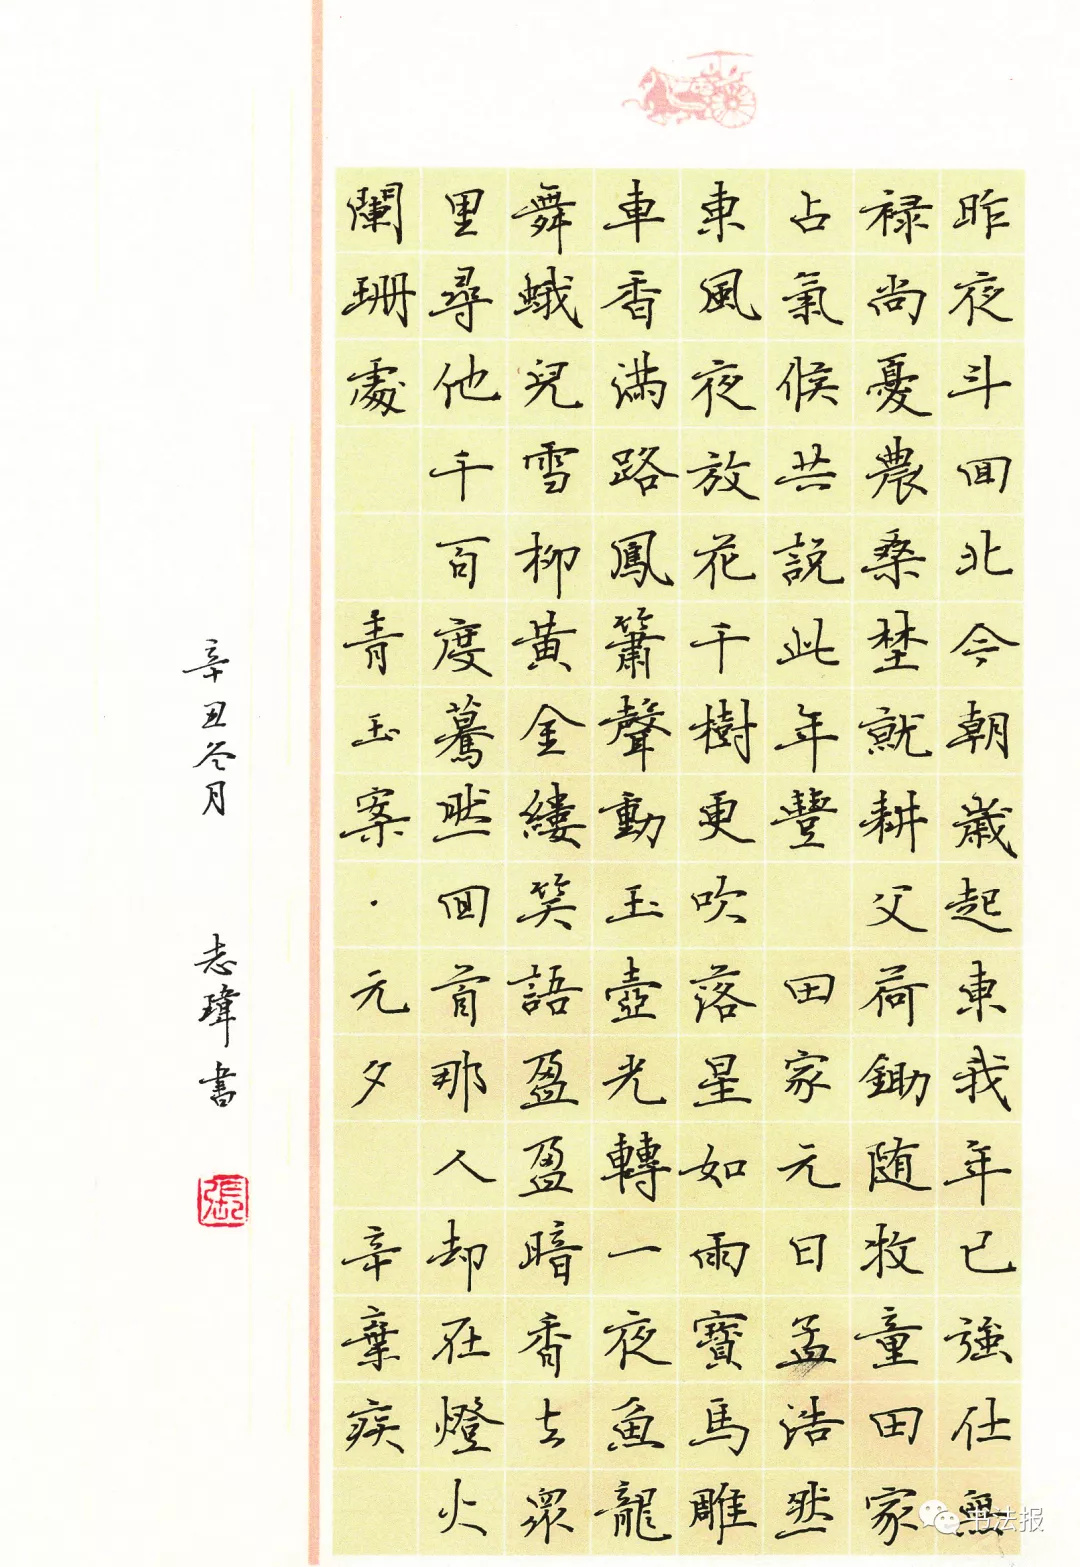 昨夜斗回北今朝歲起東我年已強仕無
禄尚憂農桑埜就耕父荷鋤随牧童田家
占氣候共說此年豐 田家元日孟浩然
東風夜放花千樹更吹落星如雨寶馬雕
車香滿路鳳簫聲動玉壺光轉一夜魚龍
舞蛾兒雪柳黃金縷笑語盈盈暗香去眾
里尋他千百度驀然回首那人却在燈火
闌珊處 青玉案·元夕 辛棄疾
辛丑冬月 志瑋書
張
书法报